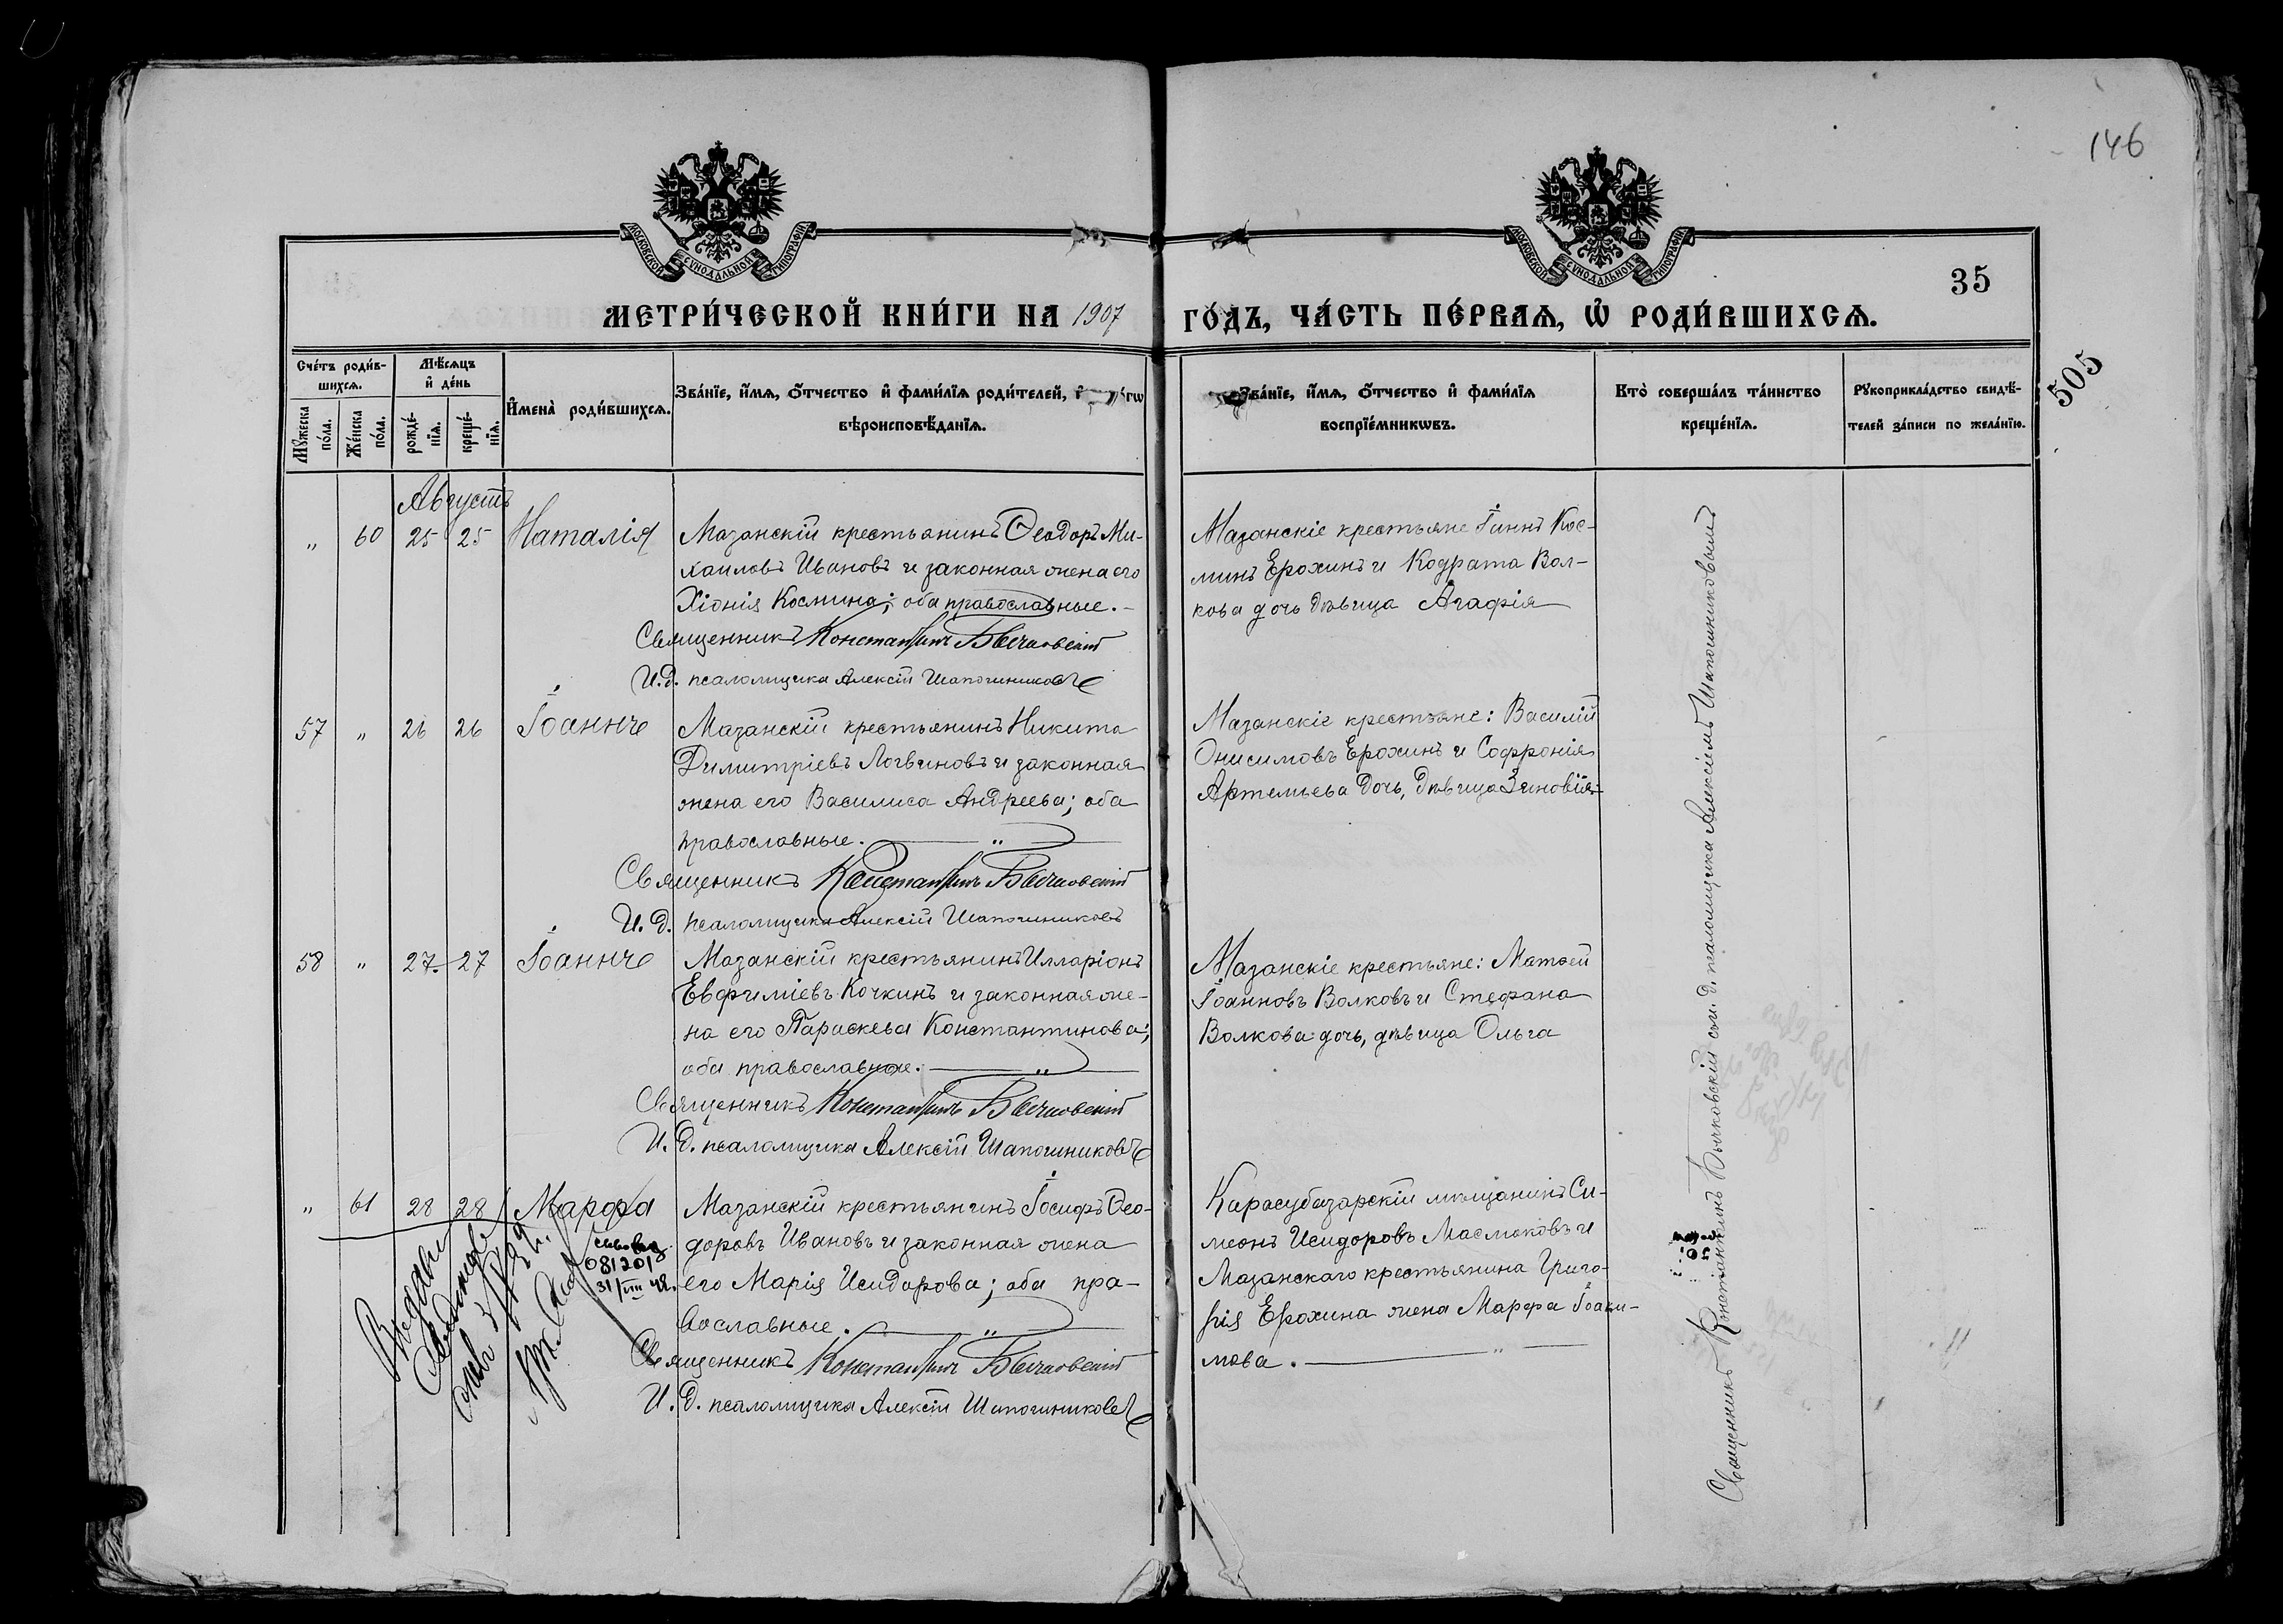 146
МОСКОВСКОЙ СѴНОДАЛЬНОЙ ТИПОГРАФІИ
МОСКОВСКОЙ СѴНОДАЛЬНОЙ ТИПОГРАФІИ
35
МЕТРИ́ЧЕСКОЙ КНИ́ГИ НА 1907 ГО́ДЪ, ЧА́СТЬ ПЕ́РВАѦ, Ѡ҆ РОДИ́ВШИХСѦ.
505
Сче́тъ роди́в-
шихсѧ.
Мꙋ́жеска
по́ла.
Же́нска
по́ла.
Мѣ́сѧцъ
и҆ де́нь
рожде́-
нїѧ.
креще́-
нїѧ.
И҆мена̀ роди́вшихсѧ.
Зва́нїе, и҆́мѧ, ѻ҆́тчество и҆ фами́лїѧ роди́телей,
вѣроисповѣ́данїѧ.
Зва́нїе, и҆́мѧ, ѻ҆́тчество и҆ фами́лїѧ
воспрїе́мникѡвъ.
Кто̀ соверша́лъ та́инство
креще́нїѧ.
Рꙋкоприкла́дство свидѣ́-
телей за́писи по жела́нїю.
Августъ
„ 60 25 25 Наталія
Мазанскій крестьянинъ Ѳеодоръ Ми-
хаиловъ Ивановъ и законная жена его
Хіонія Космина; оба православные.
Священникъ Константинъ Бычковскій
И.д. псаломщика Алексій Шапошниковъ
Мазанскіе крестьяне Іаннъ Кос-
минъ Ерохинъ и Кодрата Вол-
кова дочь дѣвица Агафія
57 „ 26 26 Іоаннъ
Мазанскій крестьянинъ Никита
Димитріевъ Логвиновъ и законная
жена его Василиса Андреева; оба
православные. „
Священникъ Константинъ Бычковскій
И. д. псаломщика Алексій Шапошниковъ
Мазанскіе крестьяне: Василій
Онисимовъ Ерохинъ и Софронія
Артемьева дочь, дѣвица Зиновія
58 „ 27 27 Іоаннъ
Мазанскій крестьянинъ Илларіонъ
Евфиміевъ Кочкинъ и законная же-
на его Параскева Константинова;
оба православные. „
Священникъ Константинъ Бычковскій
И. д. псаломщика Алексій Шапошниковъ
Мазанскіе крестьяне: Матѳей
Іоанновъ Волковъ и Стефана
Волкова дочь, дѣвица Ольга
„ 61 28 28 Марфа
Мазанскій крестьянинъ Іосифъ Ѳео-
доровъ Ивановъ и законная жена
его Марія Исидорова; оба пра-
вославные. „
Священникъ Константинъ Бычковскій
И. д. псаломщика Алексій Шапошниковъ
Карасубазарскій мѣщанинъ Си-
меонъ Исидоровъ Масмоковъ и
Мазанскаго крестьянина Григо-
рія Ерохина жена Марфа Іоаки-
мова. „
081201
31/VIII 48.
Священникъ Константинъ Бычковскій съ и. д. псаломщика Алексіемъ Шапошниковымъ